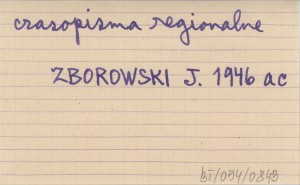 czasopisma regionalne
ZBOROWSKI J. 1946 ac
BT/054/0845